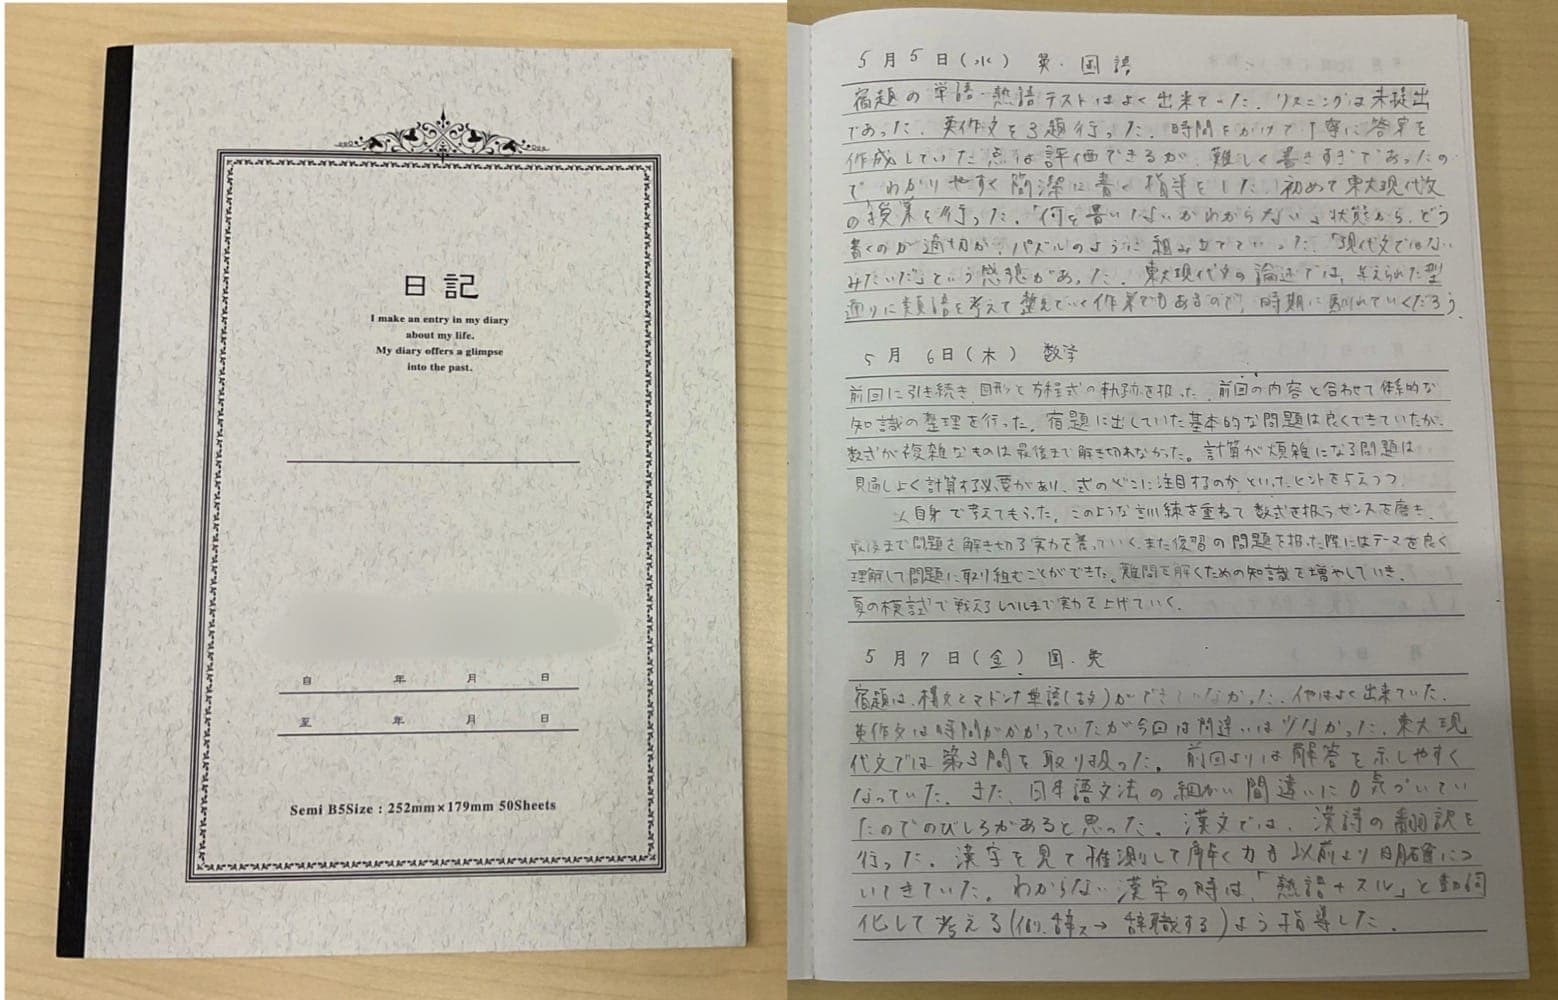 日記
I make an entry in my diary
about my life.
My diary offers a glimpse
into the past.
自 年 月 日
至 年 月 日
Semi B5Size : 252mm×179mm 50Sheets
5月5日(水) 英・国語
宿題の単語・熟語テストはよく出来ていた。リスニングは未提出
であった。英作文を3題行った。時間をかけて丁寧に答案を
作成していた点は評価できるが、難しく書きすぎであったの
で、わかりやすく簡潔に書く指導をした。初めて東大現代文
の授業を行った。「何を書いたらいいかわからない」状態から、どう
書くのが適切か、パズルのように組み立てていった。「現代文ではない
みたいだ」という感想があった。東大現代文の論述では、与えられた型
通りに類語を考えて整えていく作業でもあるので、時期に馴れていくだろう。
5月6日(木) 数学
前回に引き続き、図形と方程式の軌跡を扱った。前回の内容と合わせて体系的な
知識の整理を行った。宿題に出していた基本的な問題は良くできていたが、
数式が複雑なものは最後まで解き切れなかった。計算が煩雑になる問題は
見通しよく計算する必要があり、式のどこに注目するのか、といったヒントを与えつつ
自身で考えてもらった。このような訓練を重ねて数式を扱うセンスを磨き、
最後まで問題を解き切る実力を養っていく。また復習の問題を扱った際にはテーマを良く
理解して問題に取り組むことができた。難問を解くための知識を増やしていき、
夏の模試で戦えるレベルまで実力を上げていく。
5月7日(金) 国・英
宿題は、構文とマドンナ単語(古文)ができていなかった。他はよく出来ていた。
英作文は時間がかかっていたが今回は間違いは少なかった。東大現
代文では第3問を取り扱った。前回よりは解答を示しやすく
なっていた。また、日本語文法の細かい間違いに気づいてい
たのでのびしろがあると思った。漢文では、漢詩の翻訳を
行った。漢字を見て推測して解く力も以前より明確につ
いてきていた。わからない漢字の時は、「熟語+スル」と動詞
化して考える(例.辞ス→辞職する)よう指導した。